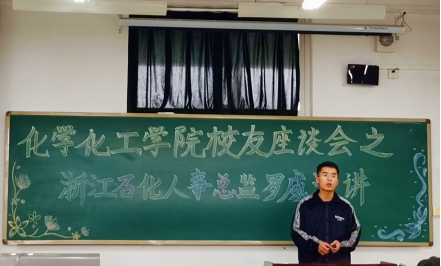 化学化工学院校友座谈会之
浙江石化人事总监罗威讲